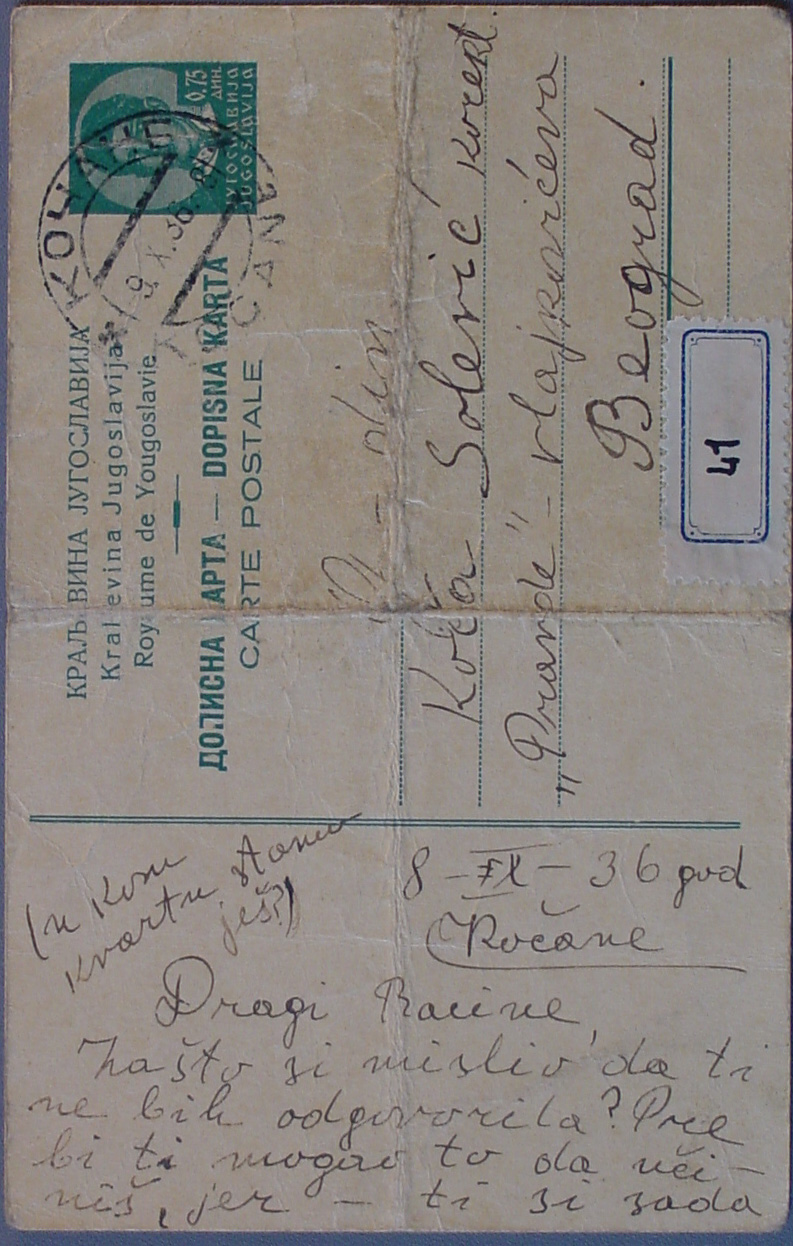 0,75
ДИН.
ЈУГОСЛАВИЈА
JUGOSLAVIJA
КОЧАНЕ
9. X. 36.
KOČANE
КРАЉЕВИНА ЈУГОСЛАВИЈА
Kraljevina Jugoslavija
Royaume de Yougoslavie
ДОПИСНА КАРТА — DOPISNA KARTA
CARTE POSTALE
Koča Solević korekt.
„Pravde" – Vlajkovićeva
Beograd.
41
(u kom
kvartu stanu
ješ?)
8 – IX – 36 god
Kočane
Dragi Racine,
Zašto si mislio da ti
ne bih odgovorila? Pre
bi ti mogao to da uči-
niš, jer – ti si sada